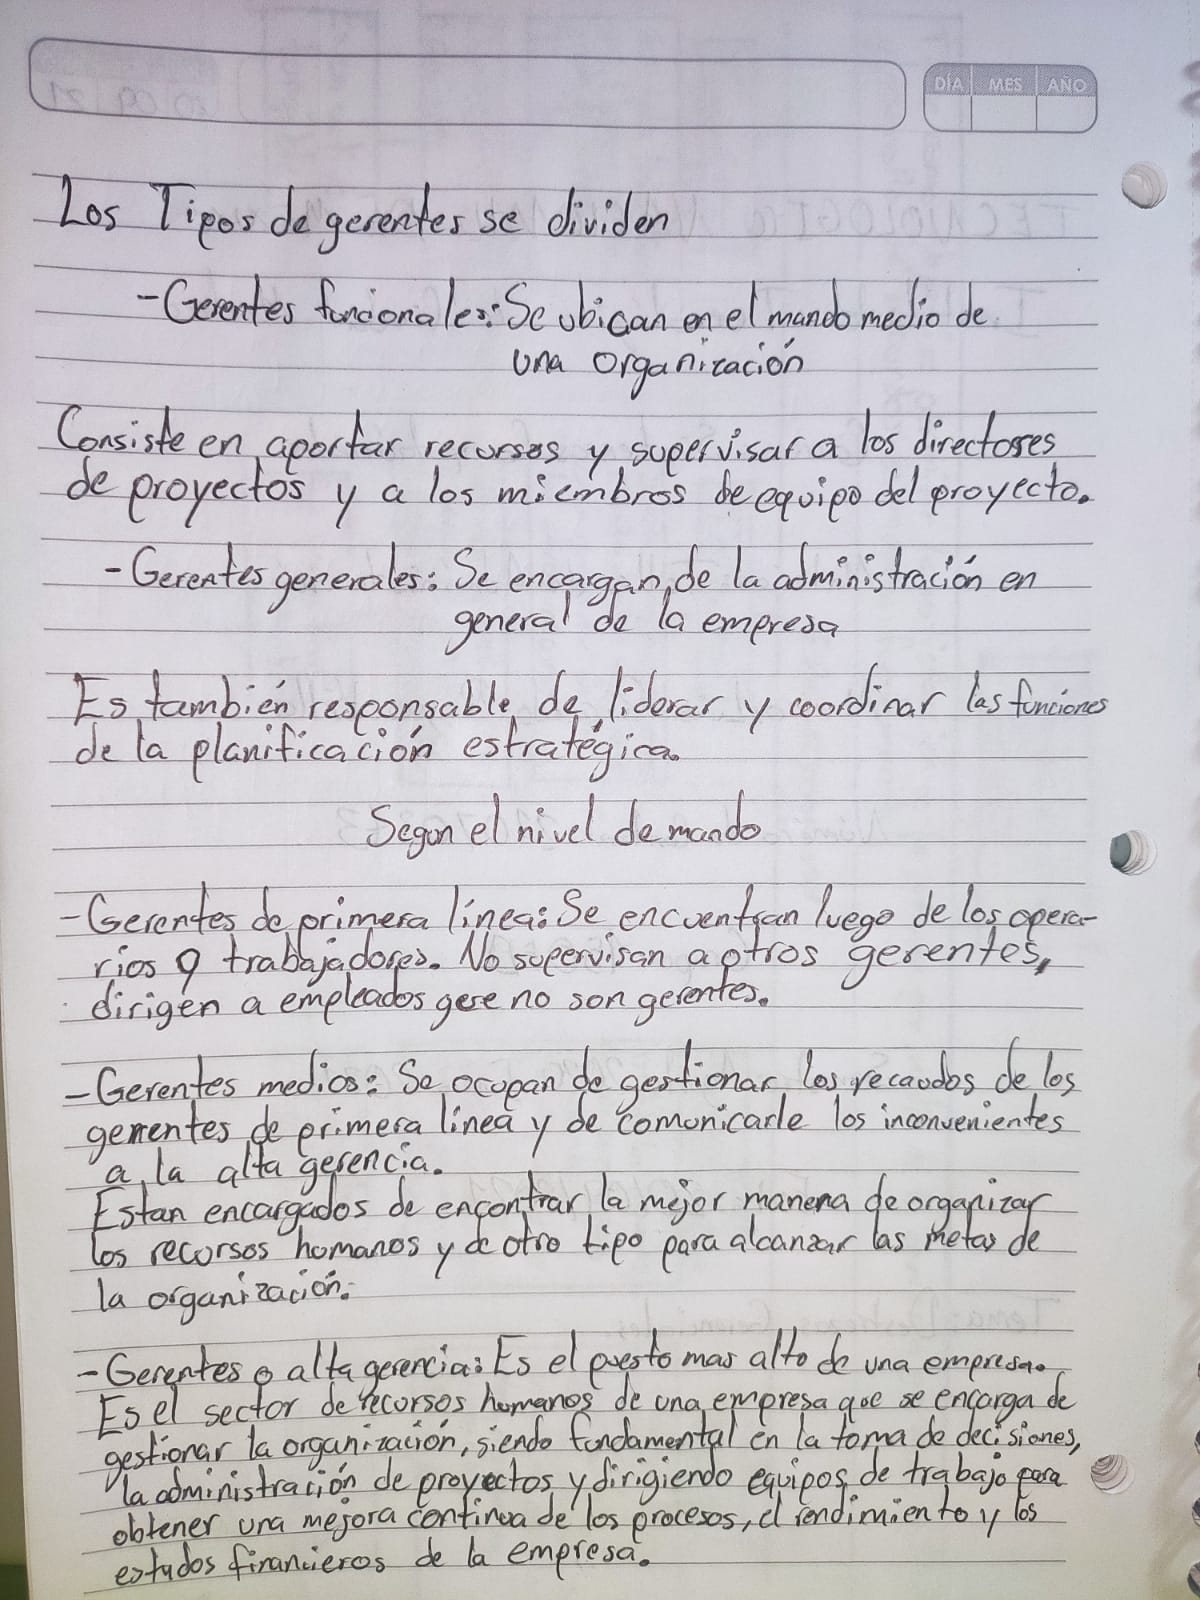 DÍA MES AÑO
Los Tipos de gerentes se dividen
-Gerentes funcionales: Se ubican en el mando medio de
una organización
Consiste en aportar recursos y supervisar a los directores
de proyectos y a los miembros de equipo del proyecto.
-Gerentes generales: Se encargan de la administración en
general de la empresa
Es también responsable de liderar y coordinar las funciones
de la planificación estratégica.
Segun el nivel de mando
-Gerentes de primera línea: Se encuentran luego de los opera-
rios o trabajadores. No supervisan a otros gerentes,
dirigen a empleados gere no son gerentes.
-Gerentes medios: Se ocupan de gestionar los recaudos de los
gerentes de primera linea y de comunicarle los inconvenientes
a la alta gerencia.
Estan encargados de encontrar la mejor manera de organizar
los recursos humanos y de otro tipo para alcanzar las metas de
la organización.
-Gerentes o alta gerencia: Es el puesto mas alto de una empresa.
Es el sector de recursos humanos de una empresa que se encarga de
gestionar la organización, siendo fundamental en la toma de decisiones,
la administración de proyectos y dirigiendo equipos de trabajo para
obtener una mejora continua de los procesos, el rendimiento y los
estados financieros de la empresa.